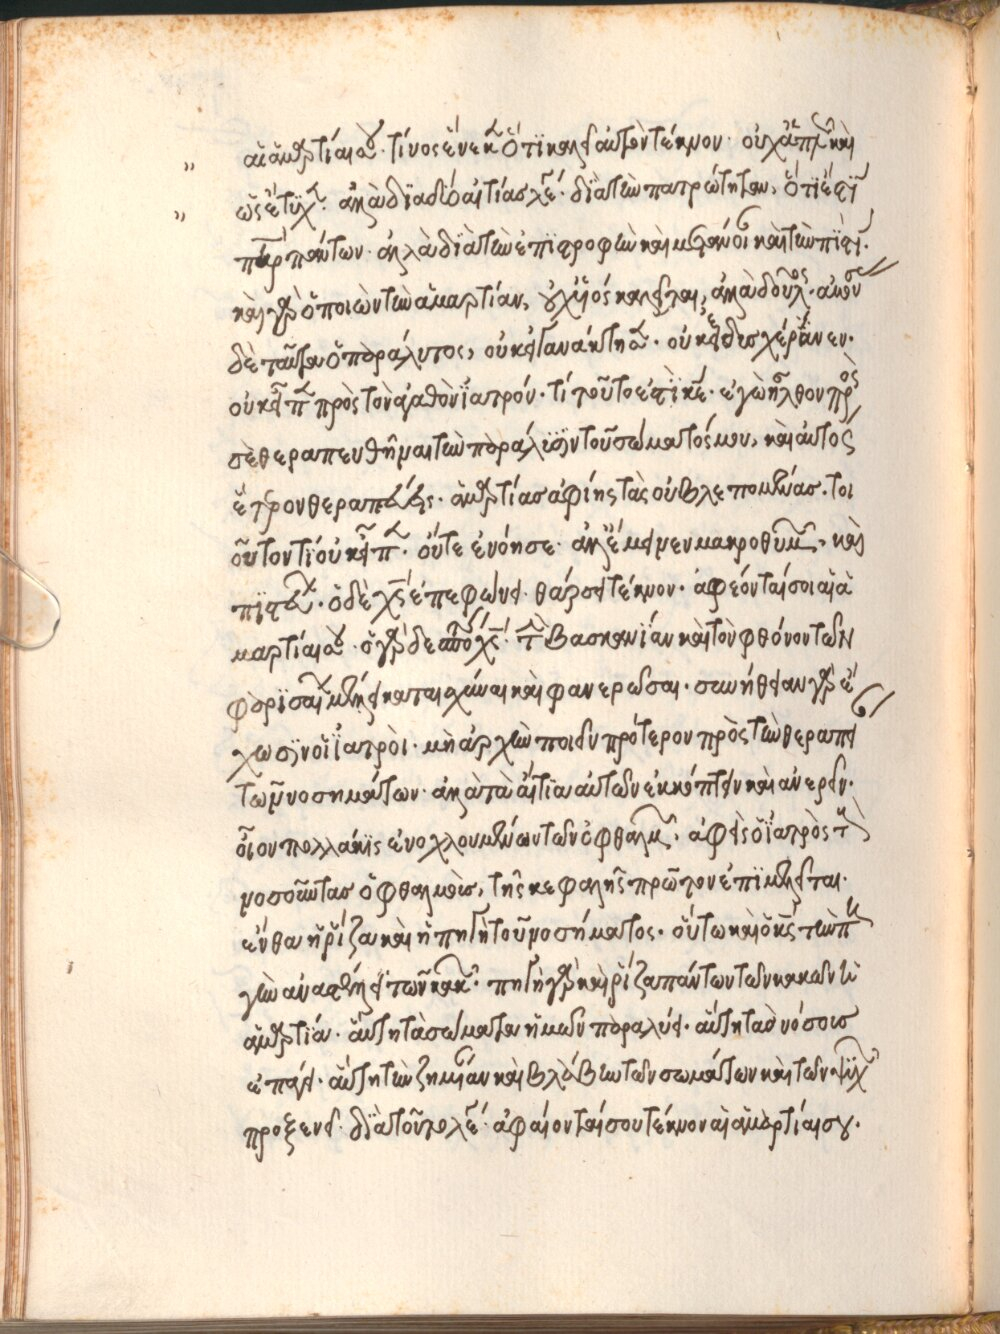 αἱ ἁμαρτίαι σου· τίνος ἕνεκα ὅτι καλεῖ αὐτὸν τέκνον· οὐχ ἁπλῶς καὶ
ὡς ἔτυχεν· ἀλλὰ διὰ δύο αἰτίας λέγει· διὰ τὴν πατρότητα, ὅτι ἐστὶ
πατὴρ πάντων· ἀλλὰ διὰ τὴν ἐπιστροφὴν καὶ μετάνοιαν καὶ τὴν πίστιν·
καὶ γὰρ ὁ ποιῶν τὴν ἁμαρτίαν, οὐχ υἱός καλεῖται, ἀλλὰ δοῦλος· ἀκούων
δὲ ταῦτα ὁ παράλυτος, οὐκ ἠγανάκτησεν· οὐκ ἐδυσχέρανεν·
οὐκ εἶπεν πρὸς τὸν ἀγαθὸν ἰατρόν· τί τοῦτο ἐστὶ κύριε· ἐγὼ ἦλθον πρός
σὲ θεραπευθῆναι τὴν παράλυσιν τοῦ σώματός μου, καὶ αὐτὸς
ἕτερον θεραπεύεις· ἁμαρτίας ἀφίης τὰς οὐ βλεπομένας· τοι
οῦτον τί οὐκ εἶπεν· οὔτε ἐνόησε· ἀλλ' ἔμεινεν μακροθυμῶν, καὶ
πιστεύων· ὁ δὲ χριστὸς ἐπεφώνει· θάρσει τέκνον· ἀφέονταί σοι αἱ ἁ
μαρτίαι σου· ὁ γὰρ δεσπότης χριστὸς· τὴν βασκανίαν καὶ τὸν φθόνον τῶν
φαρισαίων μέλλει καταισχύναι καὶ φανερῶσαι· συνήθειαν γὰρ ἔ
χωσιν οἱ ἰατροὶ· μὴ ἀρχὴν ποιεῖν πρότερον πρὸς τὴν θεραπεί
τῶν νοσημάτων· ἀλλὰ τὰ αἴτια αὐτῶν ἐκκόπτειν καὶ ἀναιρεῖν·
οἷον πολλάκις ἐνοχλουμένων τῶν ὀφθαλμῶν· ἀφεὶς ὁ ἰατρὸς τοὺς
νοσοῦντας ὀφθαλμοὺς, τῆς κεφαλῆς πρῶτον ἐπιμελεῖται·
ἔνθα ἡ ῥίζα καὶ ἡ πηγὴ τοῦ νοσήματος· οὕτω καὶ ὁ κύριος τὴν πη
γὴν ἀναστέλλει τῶν κακῶν· πηγὴ γὰρ καὶ ῥίζα πάντων τῶν κακῶν ἡ
ἁμαρτία· αὕτη τὰ σώματα ἡμῶν παραλύει· αὕτη τὰς νόσους
ἐπάγει· αὕτη τὴν ζημίαν καὶ βλάβην τῶν σωμάτων καὶ τῶν ψυχῶν
προξενεῖ· διὰ τοῦτο λέγει· ἀφαίονταί σου τέκνον αἱ ἁμαρτίαι σου·